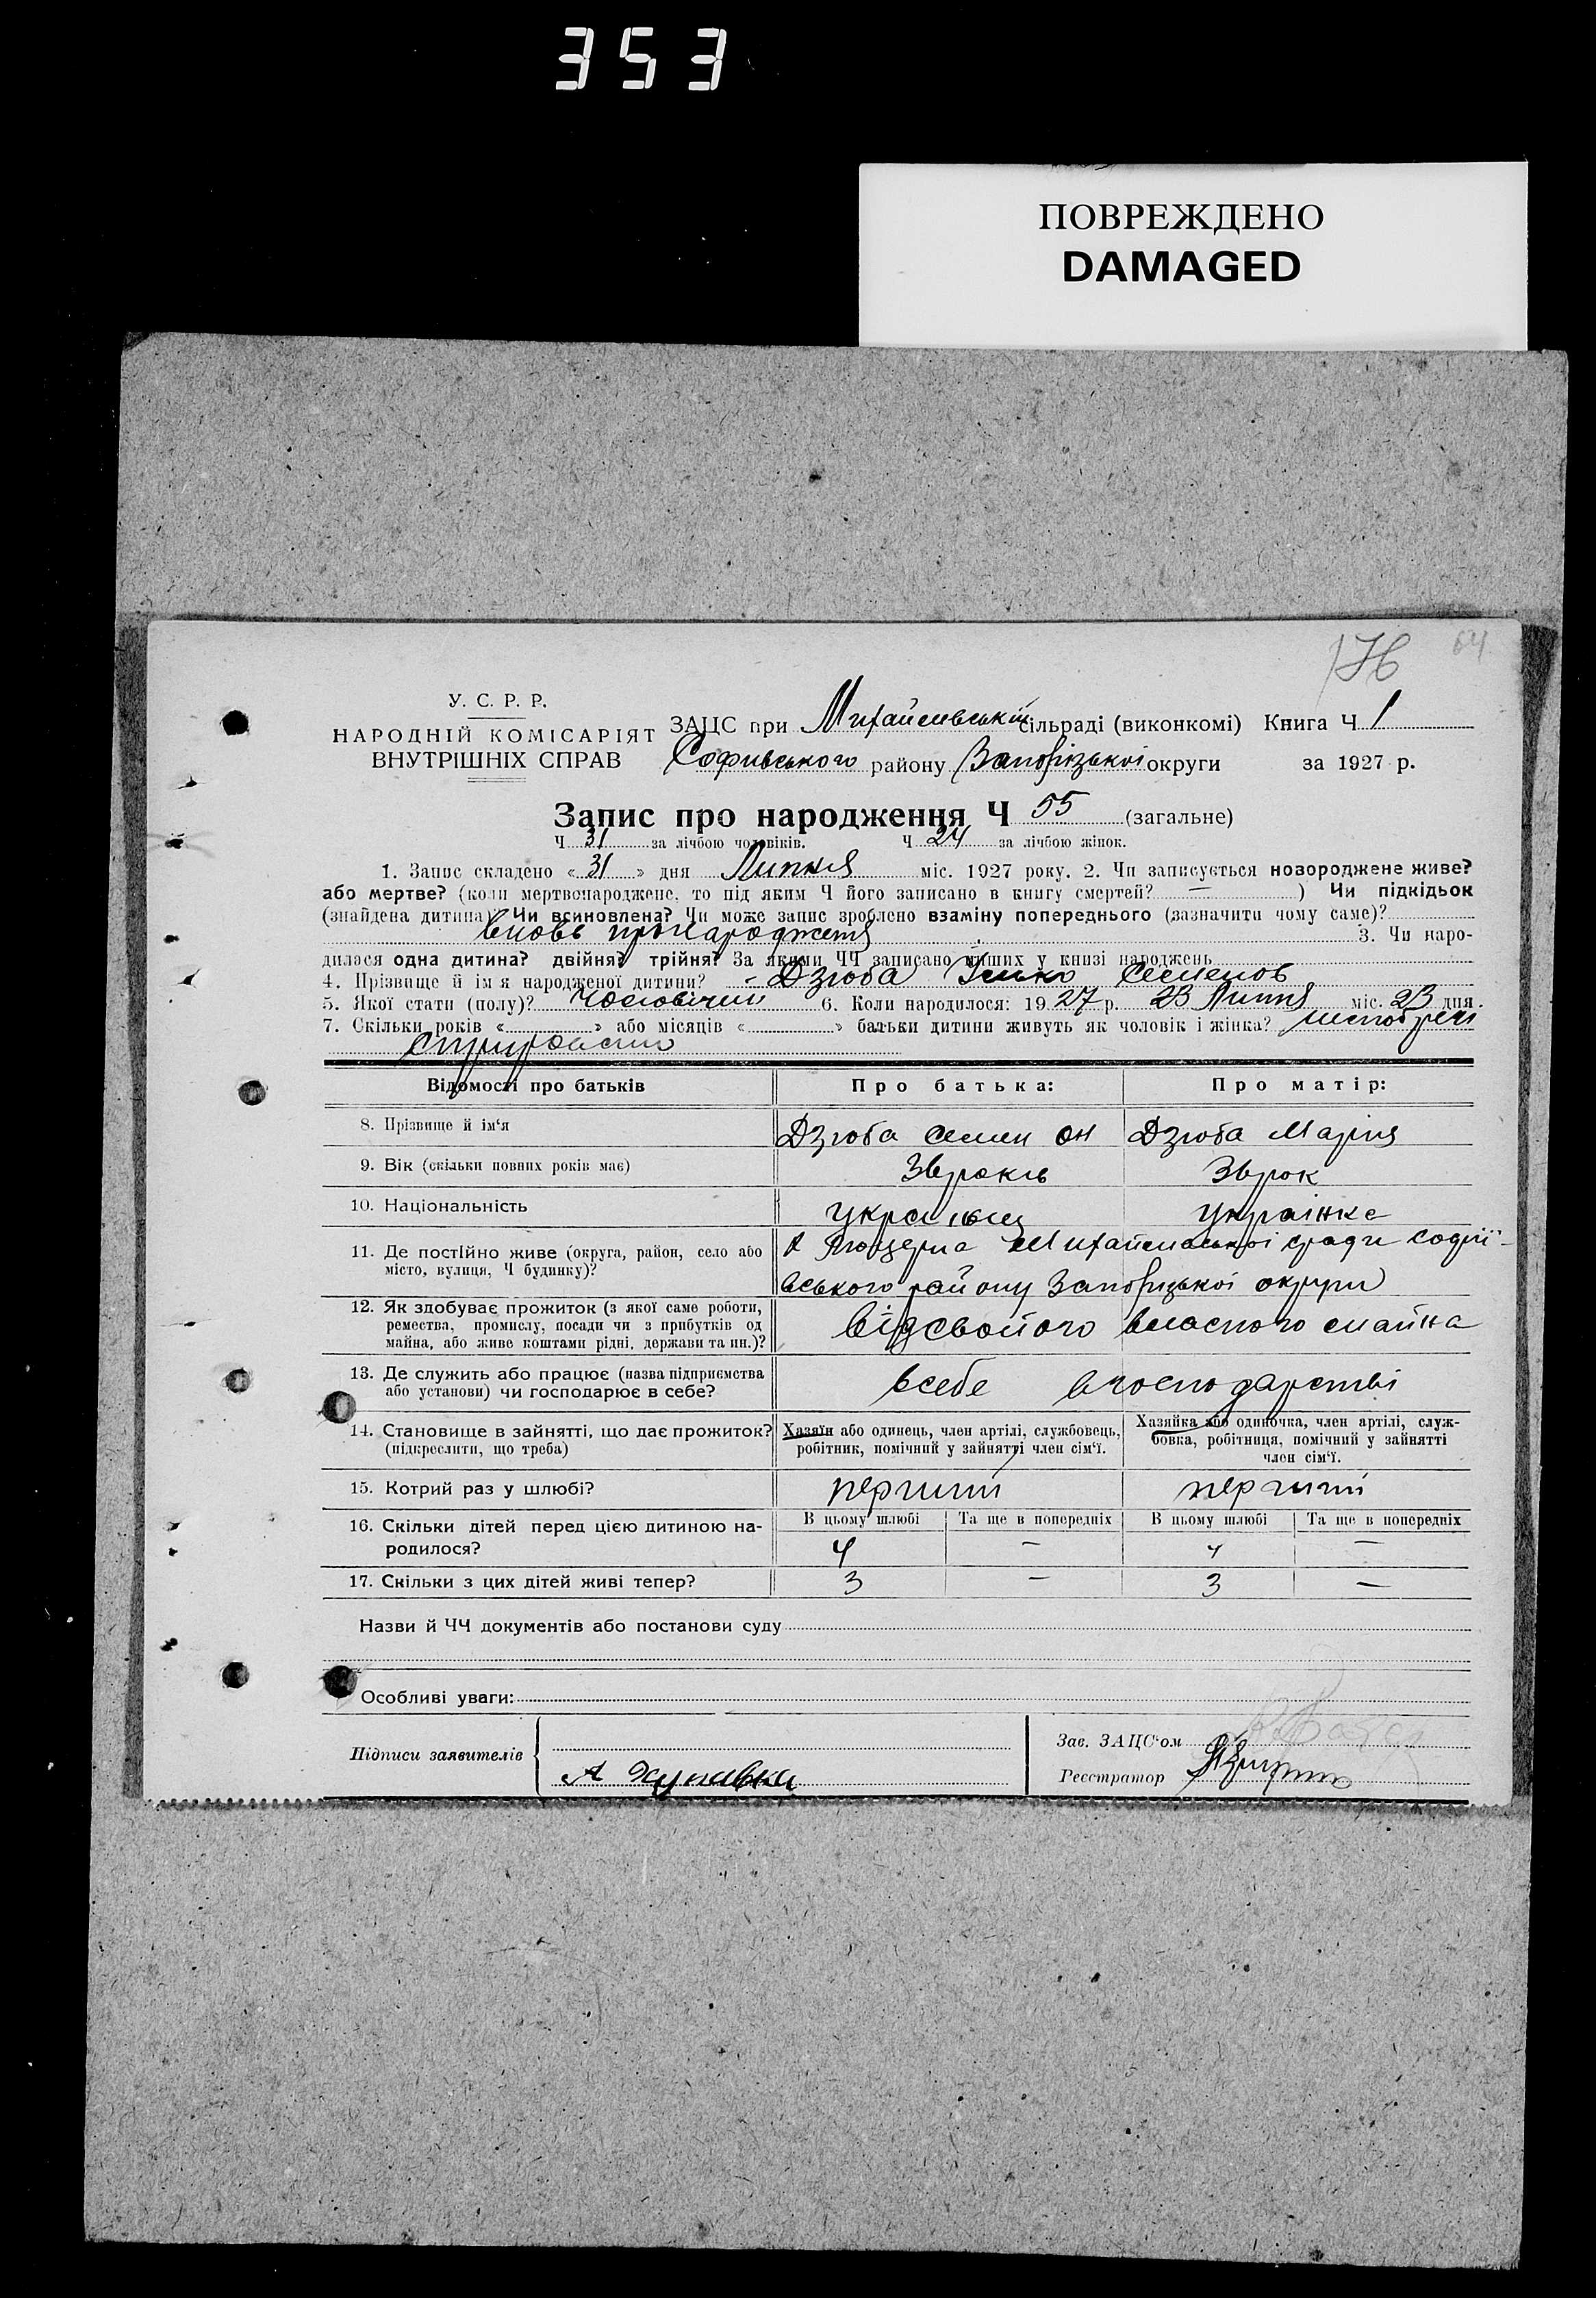 353
ПОВРЕЖДЕНО
DAMAGED
176 64
У. С. Р. Р.
НАРОДНІЙ КОМІСАРІЯТ
ВНУТРІШНІХ СПРАВ
ЗАЦС при Михайлівській сільраді (виконкомі) Книга Ч 1
Софиевського району Запорізької округи за 1927 р.
Запис про народження Ч 55 (загальне)
Ч 31 за лічбою чоловіків. Ч 24 за лічбою жінок.
1. Запис складено «31» дня Липня міс. 1927 року. 2. Чи записується новороджене живе?
або мертве? (коли мертвонароджене, то під яким Ч його записано в книгу смертей? — ) Чи підкідьок
(знайдена дитина) Чи всиновлена? Чи може запис зроблено взаміну попереднього (зазначити чому саме)?
вновь 3. Чи наро-
дилася одна дитина? двійня? трійня? За якими ЧЧ записано інших у книзі народжень
4. Прізвище й ім'я народженої дитини? - Дзюба Семенов
5. Якої стати (полу)? 6. Коли народилося: 1927 р. 23 Липня міс. 23 дня.
7. Скільки років « » або місяців « » батьки дитини живуть як чоловік і жінка?
Відомості про батьків Про батька: Про матір:
8. Прізвище й ім'я Дзюба Семен Дзюба Мария
9. Вік (скільки повних років має)
10. Національність украінец украінка
11. Де постійно живе (округа, район, село або
місто, вулиця, Ч будинку)?
Михайлівської сради софиї-
вського району Запоризької округи
12. Як здобуває прожиток (з якої саме роботи,
ремества, промислу, посади чи з прибутків од
майна, або живе коштами рідні, держави та ин.)?
від свойого власного майна
13. Де служить або працює (назва підприємства
або установи) чи господарює в себе?
всебе вгосподарстві
14. Становище в зайнятті, що дає прожиток?
(підкреслити, що треба)
Хазяїн або одинець, член артілі, службовець,
робітник, помічний у зайнятті член сім'ї.
Хазяйка або одиночка, член артілі, служ-
бовка, робітниця, помічний у зайнятті
член сім'ї.
15. Котрий раз у шлюбі? перший перший
16. Скільки дітей перед цією дитиною на-
родилося?
В цьому шлюбі Та ще в попередніх В цьому шлюбі Та ще в попередніх
4 — 4 —
17. Скільки з цих дітей живі тепер? 3 — 3 —
Назви й ЧЧ документів або постанови суду
Особливі уваги:
Підписи заявителів
Зав. ЗАЦС'ом
Реєстратор